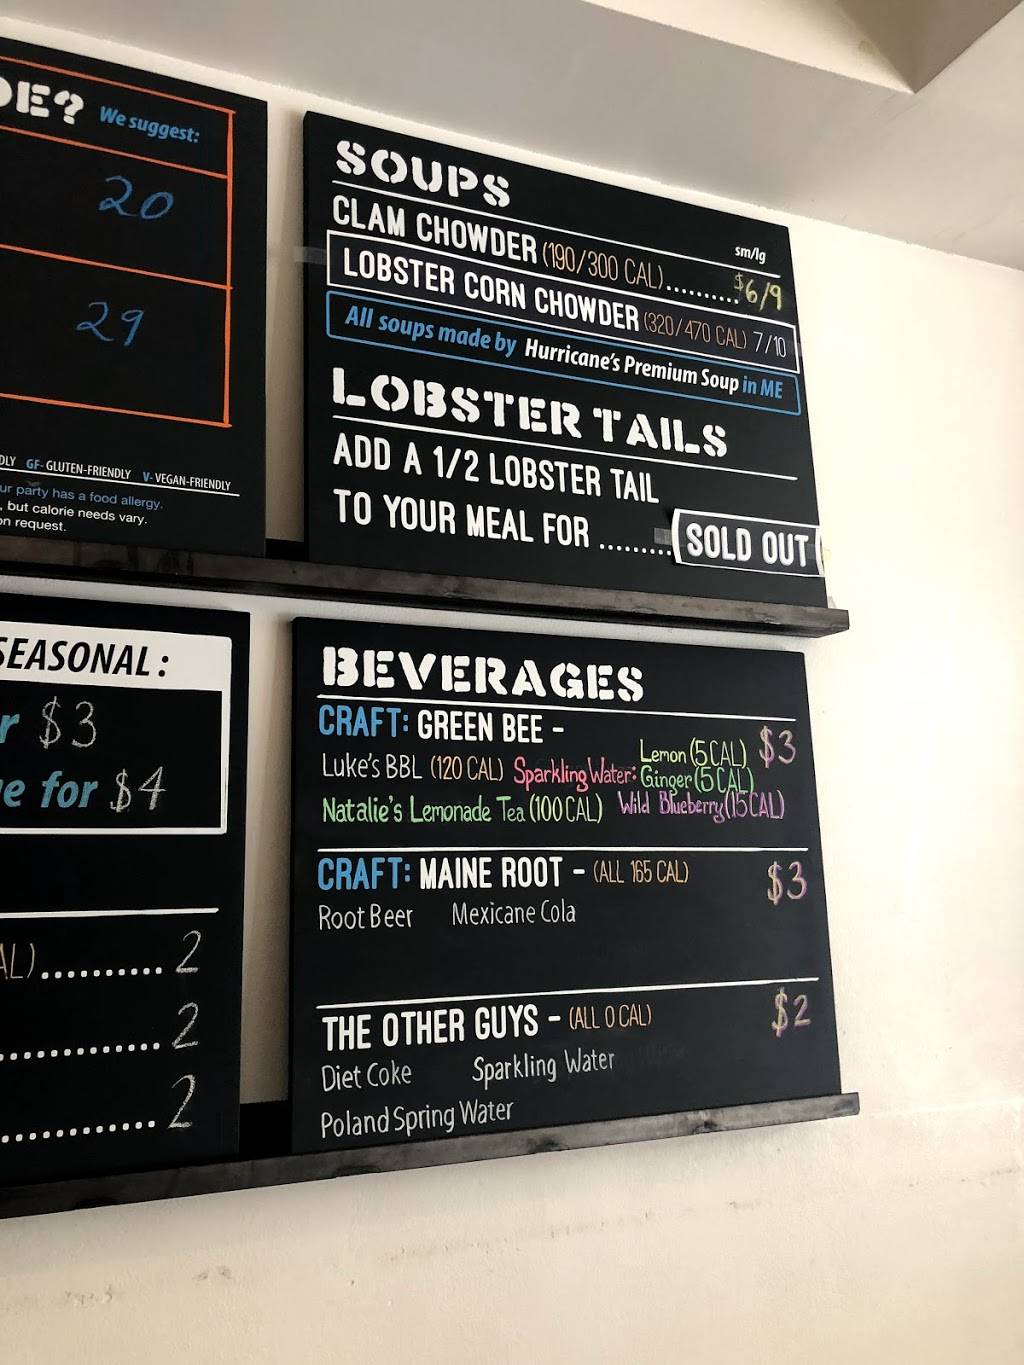 We suggest:
20
29
GF- GLUTEN-FRIENDLY V- VEGAN-FRIENDLY
party has a food allergy.
, but calorie needs vary.
request.
SOUPS
sm/lg
CLAM CHOWDER (190/300 CAL)..........$6/9
LOBSTER CORN CHOWDER (320/470 CAL) 7/10
All soups made by Hurricane's Premium Soup in ME
LOBSTER TAILS
ADD A 1/2 LOBSTER TAIL
TO YOUR MEAL FOR .........SOLD OUT
SEASONAL:
$3
for $4
..........2
2
2
BEVERAGES
CRAFT: GREEN BEE - $3
Luke's BBL (120 CAL) Sparkling Water: Lemon (5 CAL)
Ginger (5 CAL)
Natalie's Lemonade Tea (100 CAL) Wild Blueberry (15 CAL)
CRAFT: MAINE ROOT - (ALL 165 CAL) $3
Root Beer Mexicane Cola
THE OTHER GUYS - (ALL 0 CAL) $2
Diet Coke Sparkling Water
Poland Spring Water